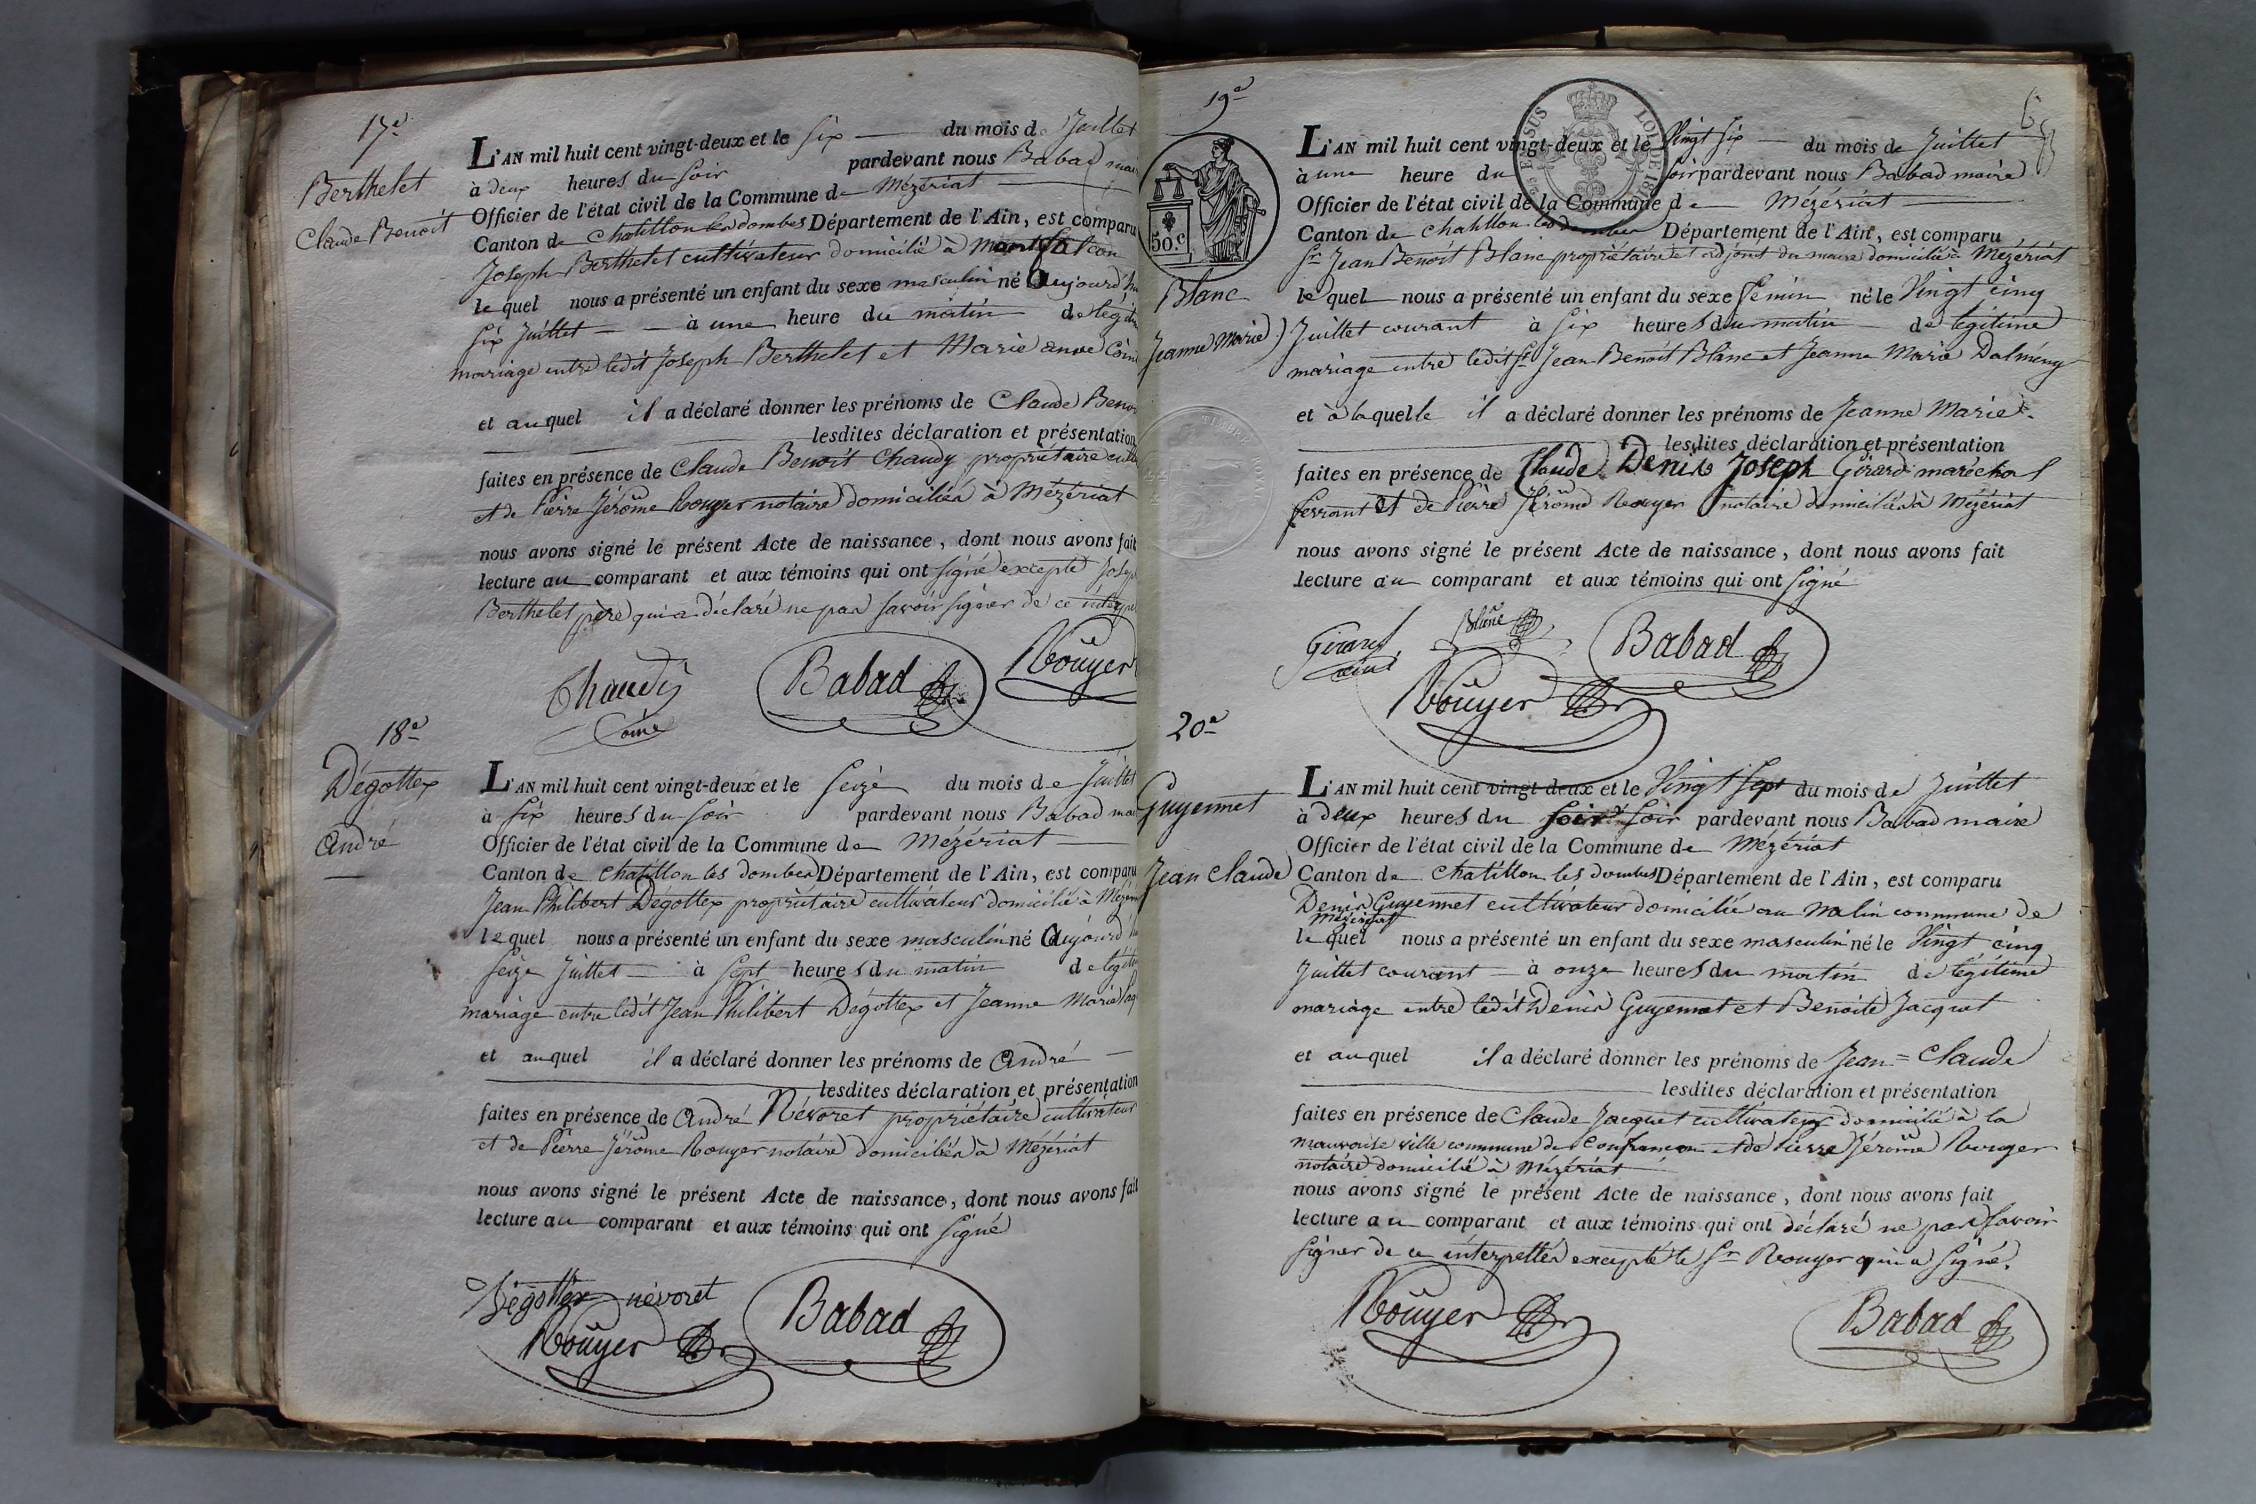 17e
Berthelet
Claude Benoit
L'AN mil huit cent vingt-deux et le six du mois de Juillet
à deux heures du soir pardevant nous Babad
Officier de l'état civil de la Commune de Mézériat
Canton de Chatillon les dombes Département de l'Ain, est comparu
Joseph Berthelet cultivateur domicilié à Montfalcon
lequel nous a présenté un enfant du sexe masculin né
six Juillet à une heure du matin de
mariage entre ledit Joseph Berthelet et Marie anne
et auquel il a déclaré donner les prénoms de Claude
lesdites déclaration et présentation
faites en présence de Claude Benoit Chaudy propriétaire
et de Pierre Jérôme Rouyer notaire domiciliés à Mézériat
nous avons signé le présent Acte de naissance, dont nous avons fait
lecture au comparant et aux témoins qui ont signé excepté
Berthelet père qui a déclaré ne pas savoir signer de ce
Chaudy
Babad
Rouyer
18e
Dégottex
André
L'AN mil huit cent vingt-deux et le seize du mois de Juillet
à six heures du soir pardevant nous Babad
Officier de l'état civil de la Commune de Mézériat
Canton de Chatillon les dombes Département de l'Ain, est comparu
Jean Philibert Dégottex propriétaire cultivateur domicilié à
lequel nous a présenté un enfant du sexe masculin né
seize Juillet à sept heures du matin de
mariage entre ledit Jean Philibert Dégottex et Jeanne Marie
et auquel il a déclaré donner les prénoms de André
lesdites déclaration et présentation
faites en présence de André Névoret propriétaire cultivateur
et de Pierre Jérôme Rouyer notaire domiciliés à Mézériat
nous avons signé le présent Acte de naissance, dont nous avons fait
lecture au comparant et aux témoins qui ont signé
Dégottex névoret
Rouyer
Babad
19e
50.c
Blanc
Jeanne Marie
L'AN mil huit cent vingt-deux et le Vingt six du mois de Juillet
à une heure du soir pardevant nous Babad maire
Officier de l'état civil de la Commune de Mézériat
Canton de Chatillon les dombes Département de l'Ain, est comparu
Sr Jean Benoit Blanc propriétaire et adjoint du maire domicilié à Mézériat
lequel nous a présenté un enfant du sexe féminin né le Vingt cinq
Juillet courant à six heures du matin de légitime
mariage entre ledit Sr Jean Benoit Blanc et Jeanne Marie Dalmény
et à laquelle il a déclaré donner les prénoms de Jeanne Marie
lesdites déclaration et présentation
faites en présence de Claude Denis Joseph Girard maréchal
ferrant et de Pierre Jérôme Rouyer notaire domiciliés à Mézériat
nous avons signé le présent Acte de naissance, dont nous avons fait
lecture au comparant et aux témoins qui ont signé
Girard
Blanc
Babad
Rouyer
20e
Guyennet
Jean Claude
L'AN mil huit cent vingt-deux et le Vingt sept du mois de Juillet
à deux heures du soir soir pardevant nous Babad maire
Officier de l'état civil de la Commune de Mézériat
Canton de Chatillon les dombes Département de l'Ain, est comparu
Denis Guyennet cultivateur domicilié au Molin commune de
Mézériat
lequel nous a présenté un enfant du sexe masculin né le Vingt cinq
Juillet courant à onze heures du matin de légitime
mariage entre ledit Denis Guyennet et Benoite Jacquet
et auquel il a déclaré donner les prénoms de Jean=Claude
lesdites déclaration et présentation
faites en présence de Claude Jacquet cultivateur domicilié à la
mauvaise ville commune de Confrançon et de Pierre Jérôme Rouyer
notaire domicilié à Mézériat
nous avons signé le présent Acte de naissance, dont nous avons fait
lecture au comparant et aux témoins qui ont déclaré ne pas savoir
signer de ce interpellés excepté le Sr Rouyer qui a signé.
Rouyer
Babad